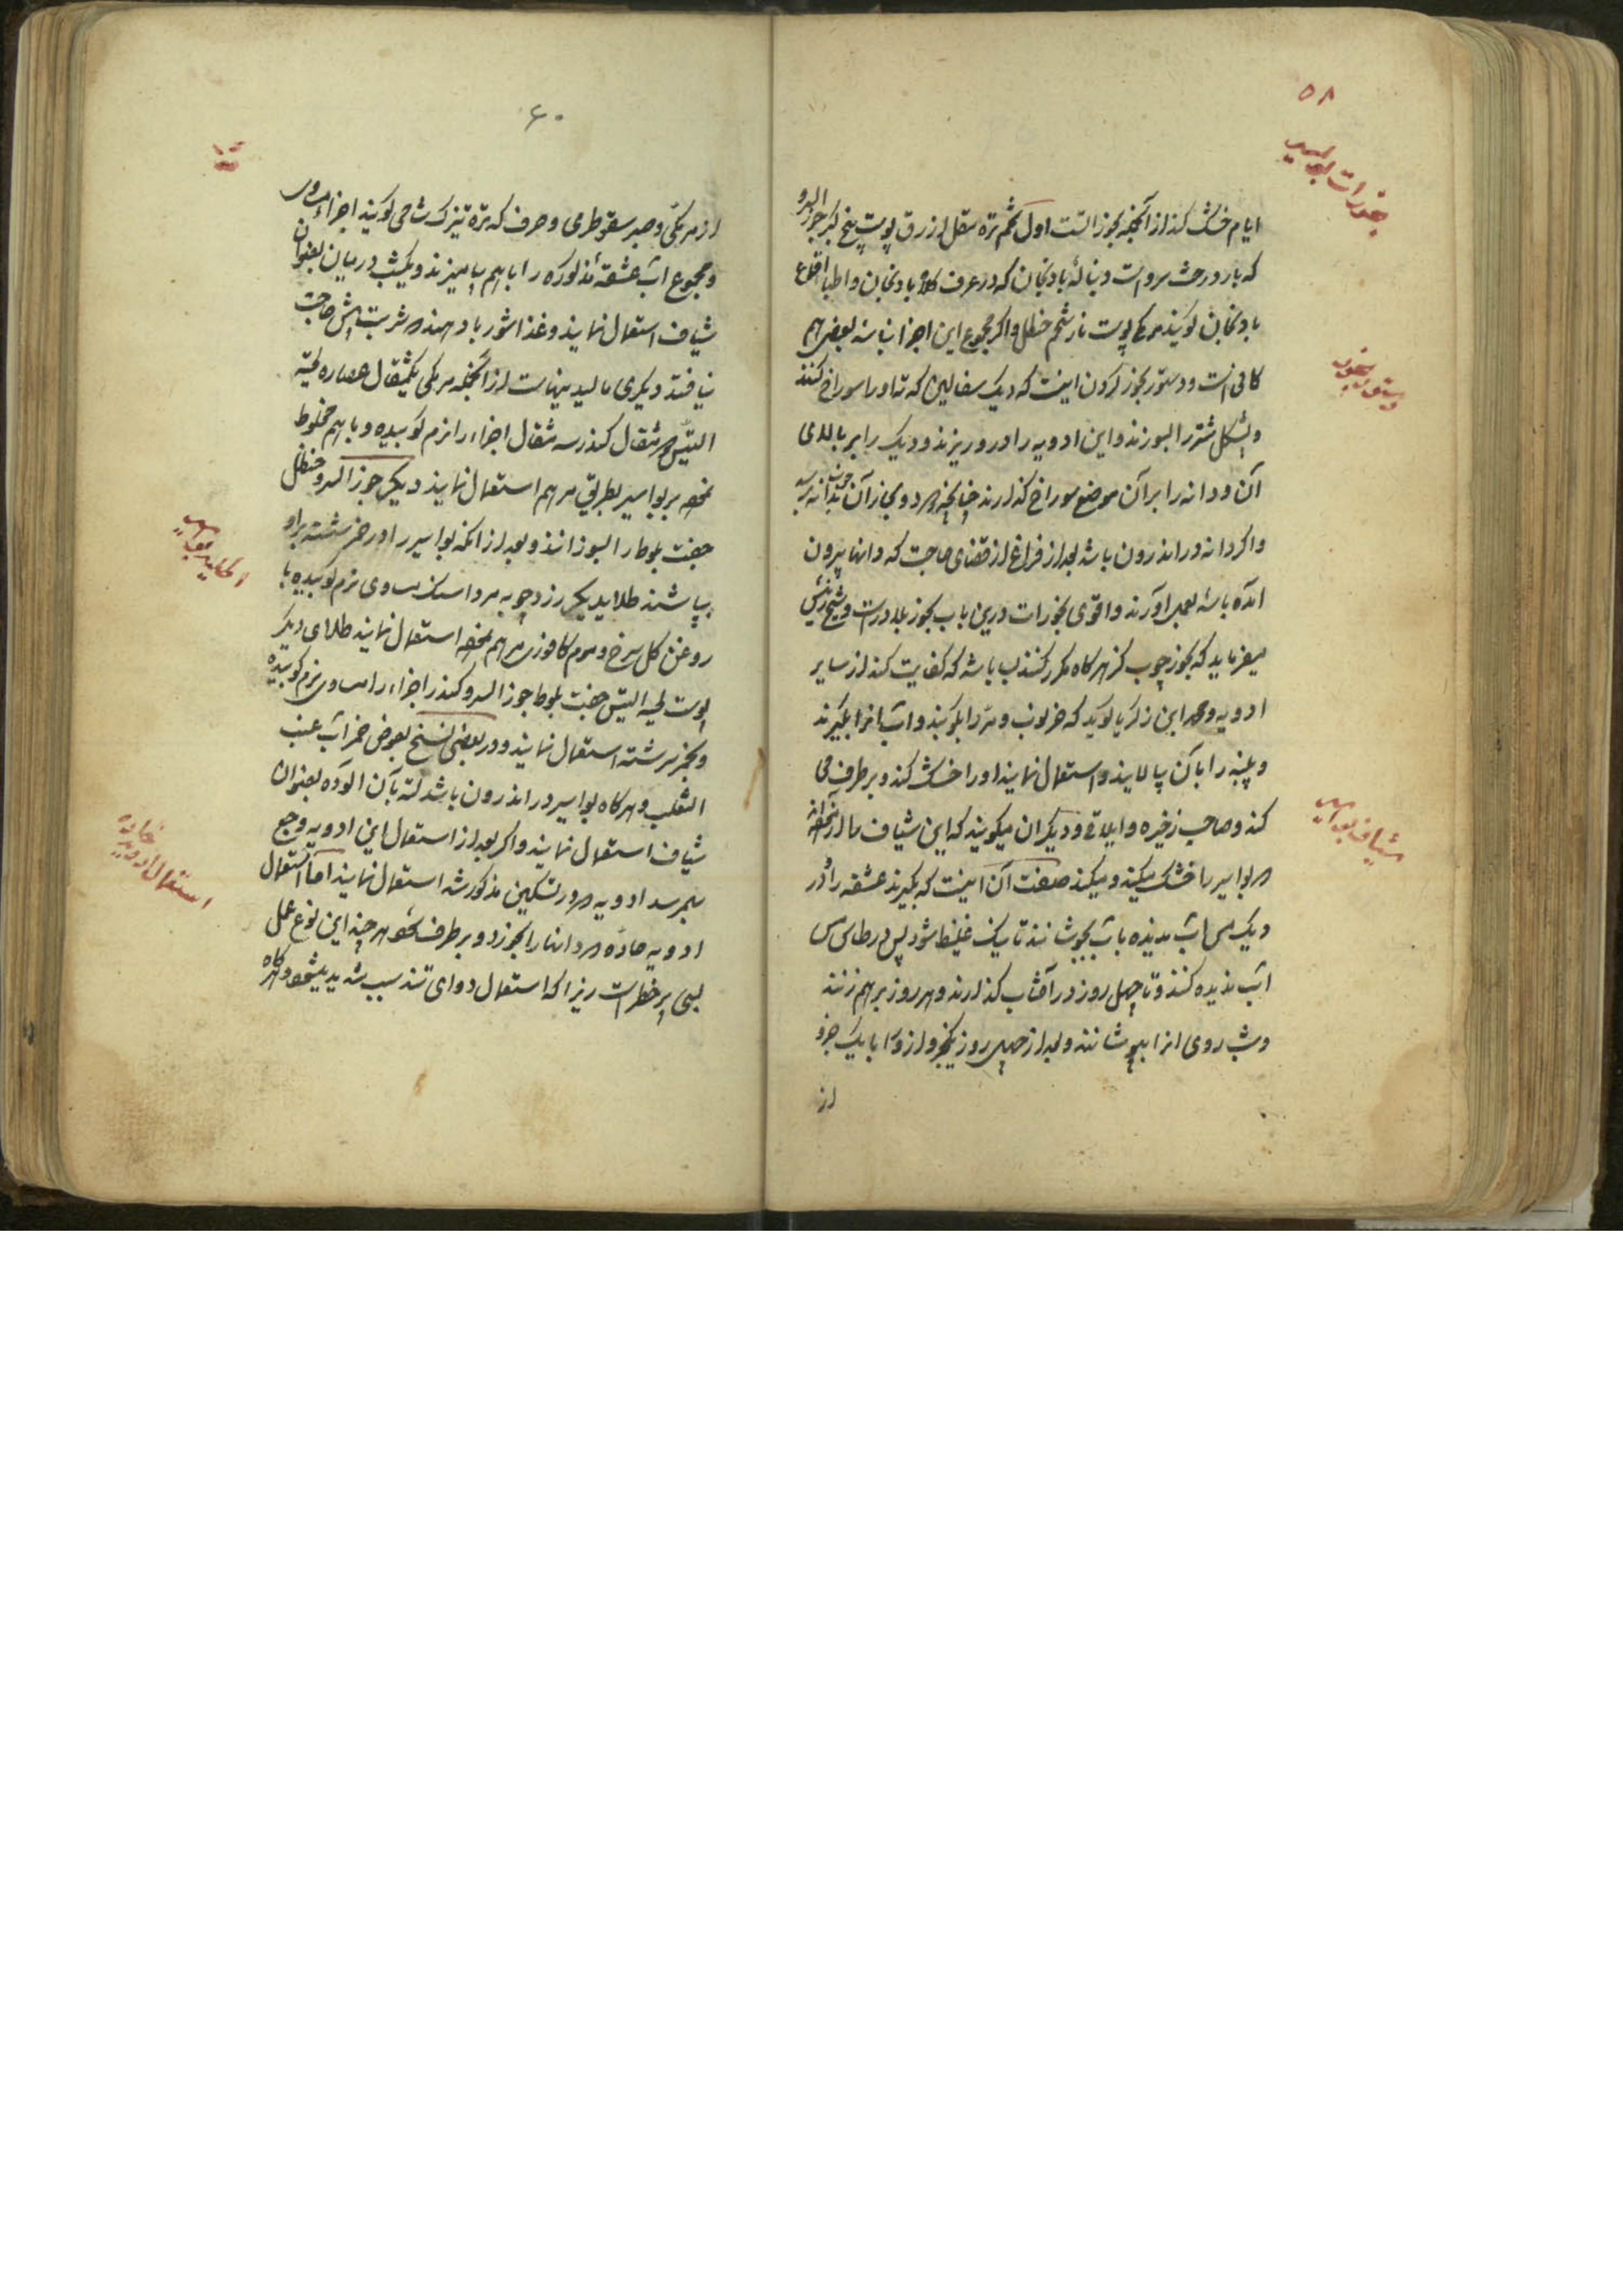 ۵۸
بخورات بواسیر
ایام خشک کند از آنجمله بخورالست اول تخم تره مقل ازرق پوست بیخ کبر جوز السرو
که بار درخت سرو است دنبالهٔ بادنجان که در عرف کلاه بادنجان و اطبا اقماع
بادنجان کویند مرمکی پوست نار شحم حنظل و اکر مجموع این اجزا نباشد بعضی هم
کافی است و دستور بخور کردن اینست که دیک سفالین که ته او را سوراخ کنند
دستور بخور
و پشکل شتر را بسوزند و این ادویه را در او ریزند و دیک را بر بالای
آن و دانه را بر آن موضع سوراخ کذارند چنانچه دود و بخار آن بدانه برسد
و اکر دانه در اندرون باشد بعد از فراغ از قضای حاجت که دانها بیرون
آمده باشد بعمل آورند و اقوی بخورات درین باب بخور بلادرست و شیخ رئیس
میفرماید که بخور چوب کز هرکاه مکرر کنند بسا باشد که کفایت کند از سایر
ادویه و محمد ابن زکریا کوید که خرنوب و تر را بکوبند و آب انرا بکیرند
و پنبه را با آن بیالایند و استعمال نمایند او را خشک کند و برطرف می
کند و صاحب ذخیره و ایلاقی و دیکران میکویند که این شیاف
شیاف بواسیر
بواسیر را خشک میکند و میکند صنعت آن اینست که بکیرند عشقه را و در
دیک مس آب ندیده با آب بجوشانند تا نیک غلیظ شود پس در طاس مس
آب ندیده کنند و تا چهل روز در آفتاب کذارند و هر روز بر هم زنند
و شب روی انرا بپوشانند و بعد از چهل روز یکجزو از و با یک جزو
از
۶۰
از مرمکی و صبر سقوطری و حرف که تره تیزک شامی کویند اجزاء مساوی
و مجموع آب عشقهٔ مذکوره را با هم بیامیزند و یکشب در میان بعنوان
شیاف استعمال نمایند و غذا شوربا دهند
نیافتد دیکری مالیدنیهاست از آنجمله مرمکی یکمثقال عصاره لحیة
التیس مثقال کندر سه مثقال اجزاء را نرم کوبیده و با هم مخلوط
نموده بر بواسیر بطریق مرهم استعمال نمایند دیکر جوز السرو حنظل
جفت بلوط را بسوزانند و بعد از آنکه بواسیر را در خمر شسته بر او
بپاشند طلا دیکر زردچوبه مرداسنک مساوی نرم کوبیده با
روغن کل سرخ و موم کافوری مرهم نموده استعمال نمایند طلای دیکر
پوست لحیه التیس جفت بلوط جوز السرو کندر اجزاء را مساوی نرم کوبیده
و بخمر سرشته استعمال نمایند و در بعضی نسخ بعوض خمر آب عنب
الثعلب و هرکاه بواسیر در اندرون باشد لته بآن آلوده بعنوان
شیاف استعمال نمایند و اکر بعد از استعمال این ادویه وجع
بهمرسد ادویه که در تسکین مذکور شد استعمال نمایند اما استعمال
استعمال ادویه حاده
ادویه حاده که دانها را بخورد و برطرف شود هر چند این نوع عمل
بسی پر خطر است زیرا که استعمال دوای تند سبب شدید میشود و هرکاه